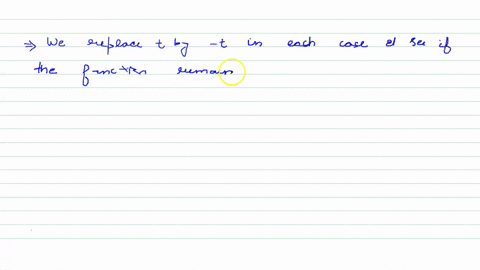 ⇒ We replace t by -t in each case & see if
the function remain